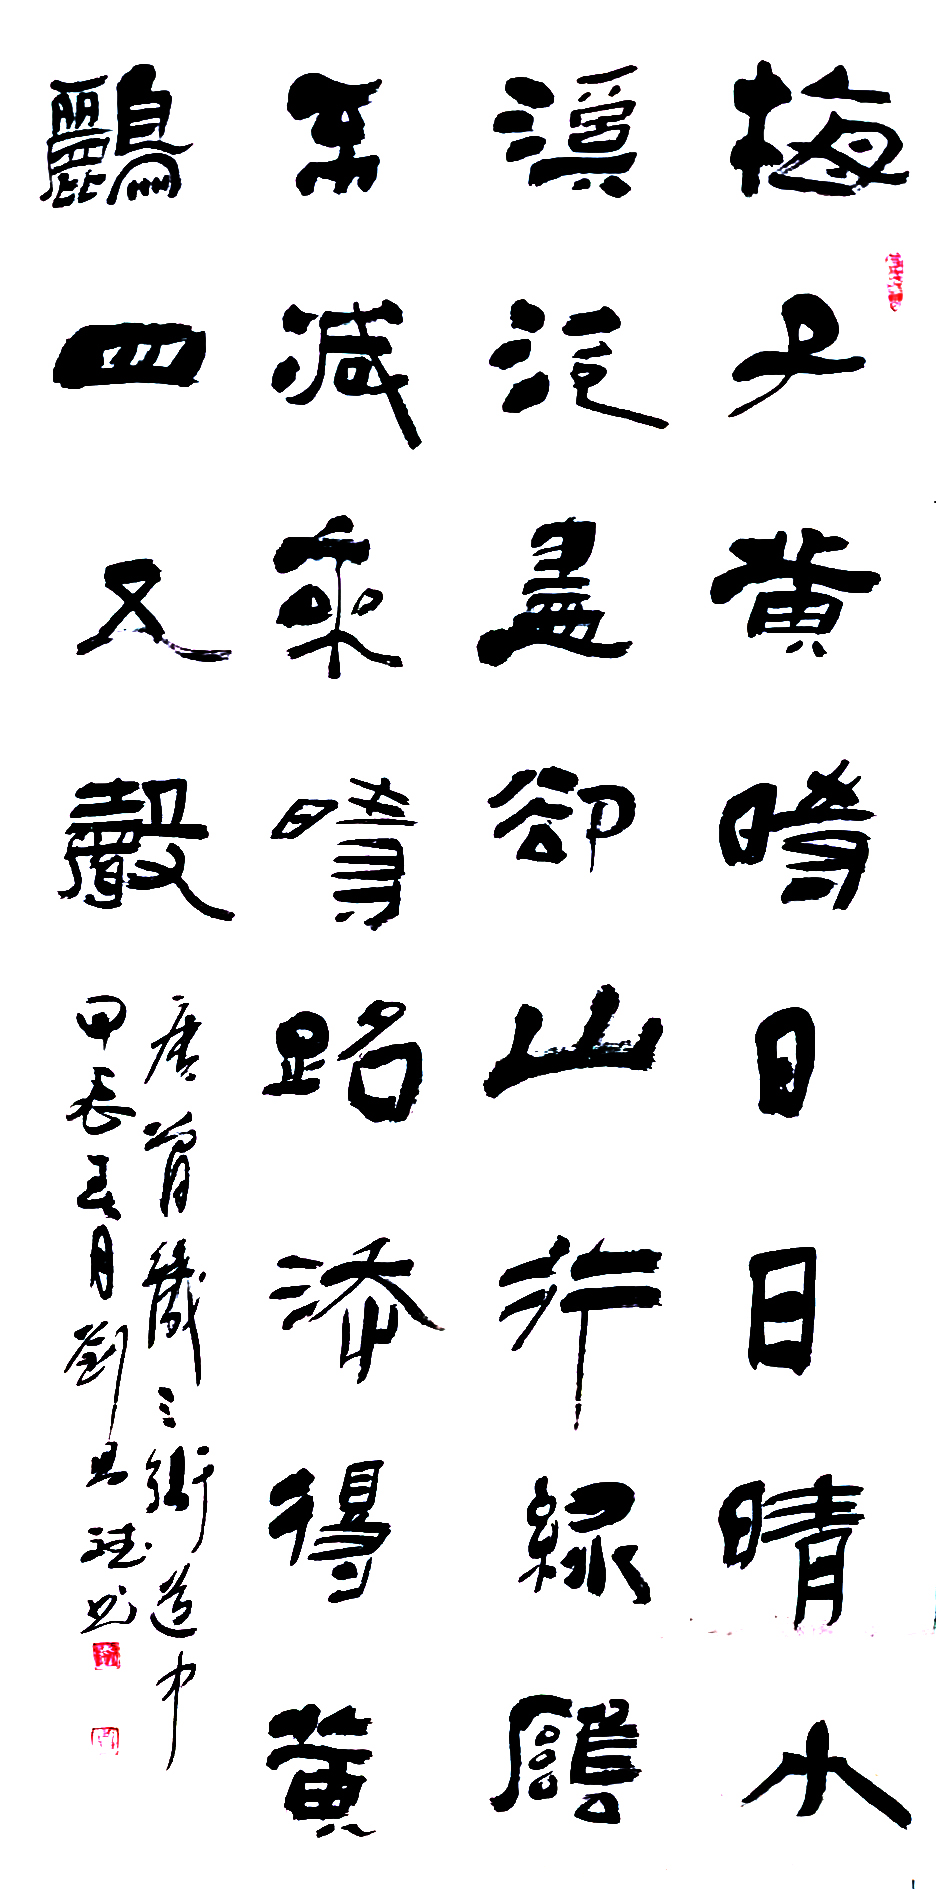 梅子黃時日日晴小
溪泛盡卻山行綠陰
不減來時路添得黃
鸝四五聲
唐曾幾三衢道中
甲辰春月劉書